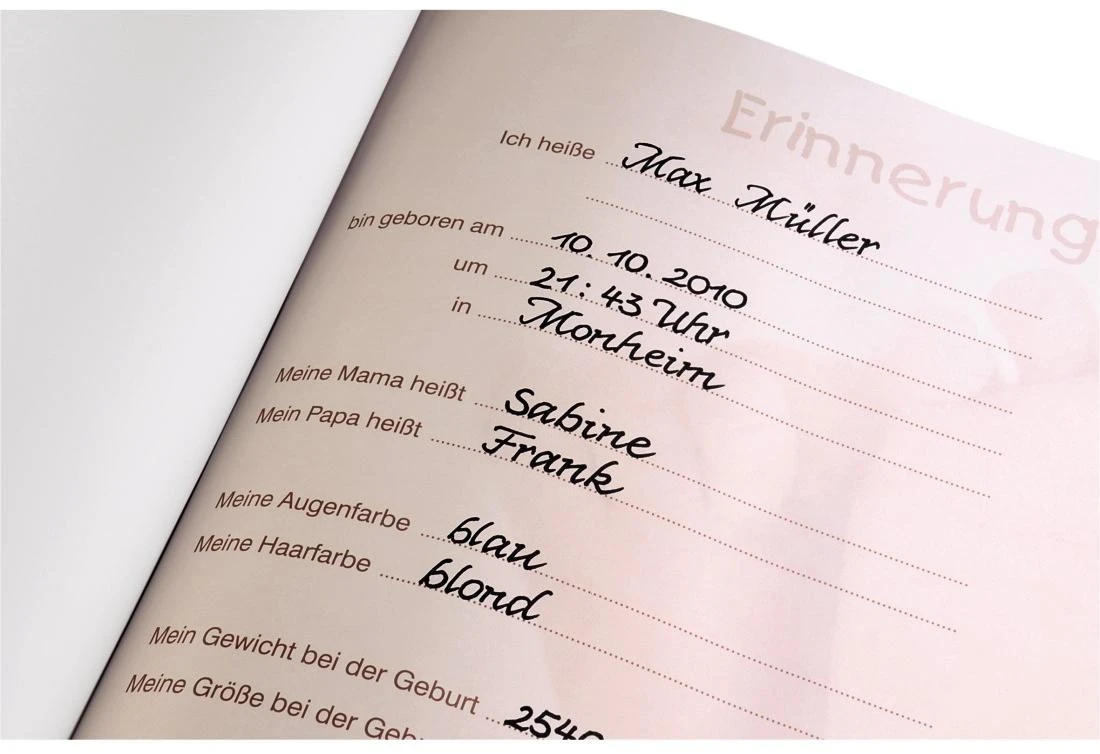 Erinnerung
Ich heiße Max Müller
bin geboren am 10. 10. 2010
um 21:43 Uhr
in Monheim
Meine Mama heißt Sabine
Mein Papa heißt Frank
Meine Augenfarbe blau
Meine Haarfarbe blond
Mein Gewicht bei der Geburt 2540
Meine Größe bei der